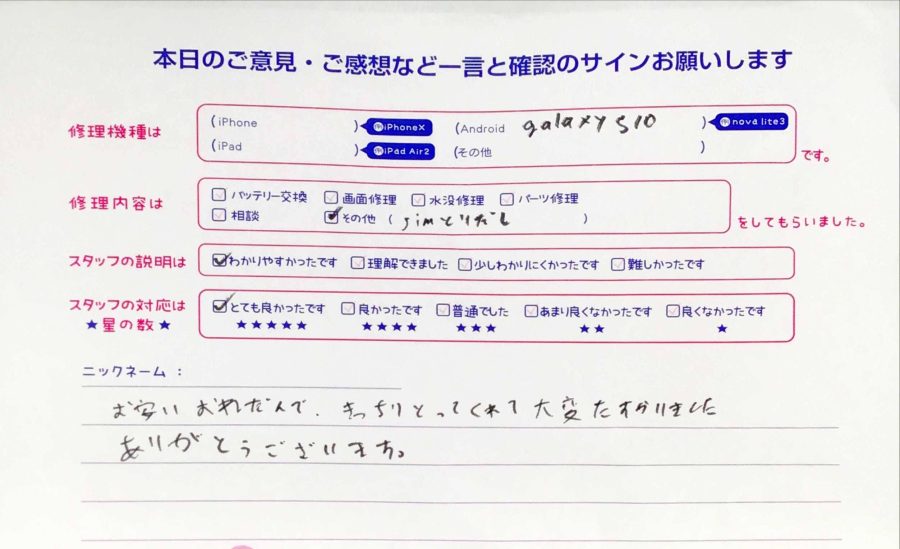 本日のご意見・ご感想など一言と確認のサインお願いします
修理機種は
(iPhone ) 例 iPhoneX (Android galaxy S10 ) 例 nova lite3
(iPad ) 例 iPad Air2 (その他 ) です。
修理内容は
バッテリー交換 画面修理 水没修理 パーツ修理
相談 その他 ( simとりだし ) をしてもらいました。
スタッフの説明は わかりやすかったです 理解できました 少しわかりにくかったです 難しかったです
スタッフの対応は とても良かったです 良かったです 普通でした あまり良くなかったです 良くなかったです
★星の数★ ★★★★★ ★★★★ ★★★ ★★ ★
ニックネーム:
お安いおねだんで、きっちりとってくれて大変たすかりました
ありがとうございます。